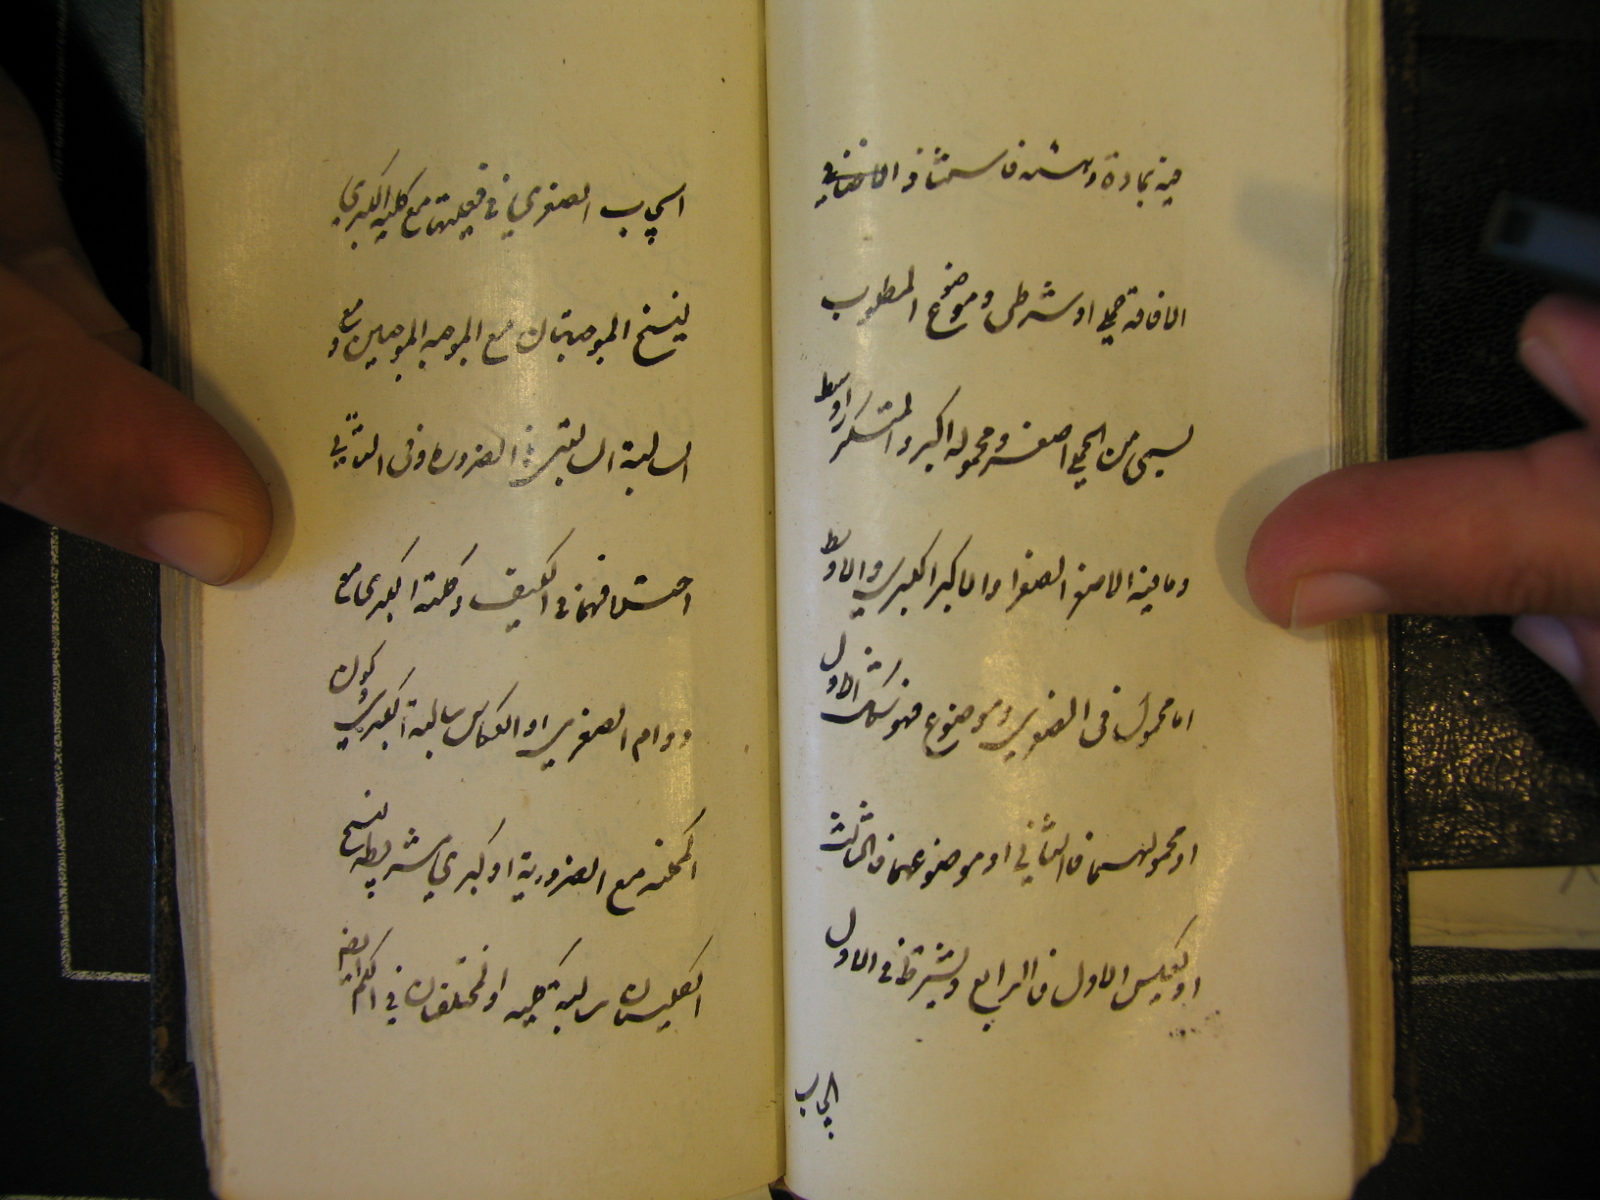 فيه بمادته وهيئته فاستثنائي والا
فاقتراني حملي او شرطي وموضوع المطلوب
يسمى من الحملي اصغر ومحموله اكبر والمتكرر اوسط
وما فيه الاصغر الصغرا والاكبر الكبرى والاوسط
اما محمول فى الصغرى وموضوع فهو شكل الاول
او محمولهما فالثاني او موضوعهما فالثالث
او عكس الاول فالرابع ويشترط في الاول
ايجاب
ايجاب الصغرى في فعليتها مع كلية الكبرى
لينتج الموجبتان مع الموجبه الموجبتين ومع
السالبة السالبتين بالضروره وفى الثاني
اختلافهما في الكيف وكلية الكبرى مع
دوام الصغرى او انعكاس سالبة الكبرى وكون
الممكنه مع الضرورية او كبرى مشروطه لينتج
الكليتان سالبة كليه او المختلفتان في الكم ايضا